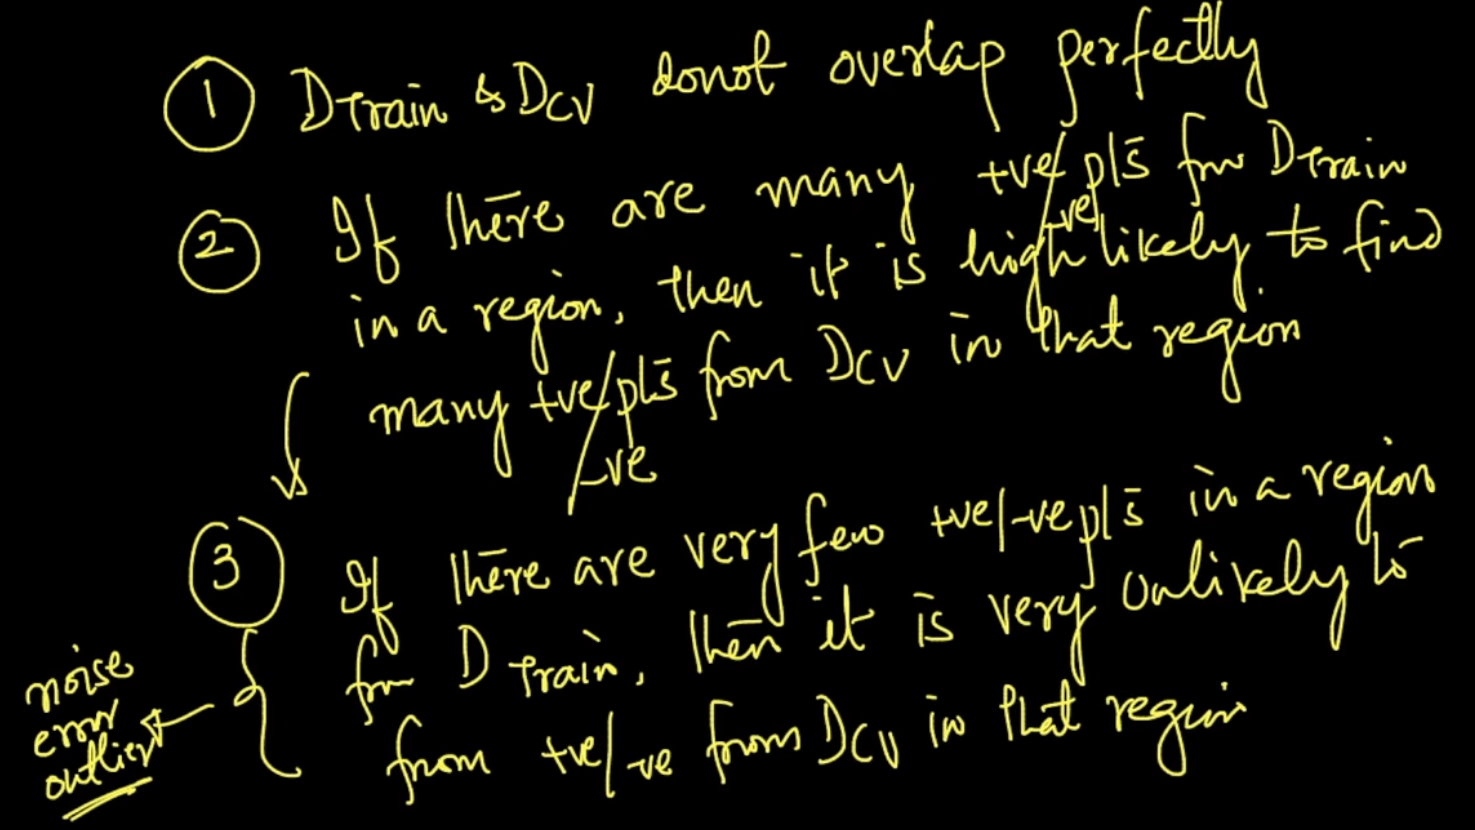 ① DTrain & DCV donot overlap perfectly
② If there are many +ve/-ve pts from DTrain
in a region, then it is high likely to find
many +ve/-ve pts from DCV in that region
③ If there are very few +ve/-ve pts in a region
from DTrain, then it is very unlikely to
from +ve/-ve from DCV in that region
noise
error
outlier